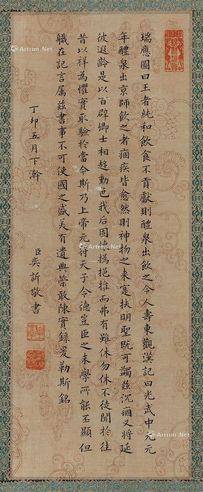 瑞應圖曰王者純和飲食不貢獻則醴泉出飲之令人壽東觀漢記曰光武中元元
年醴泉出京師飲之者痼疾皆愈然則神物之來寔扶明聖既可蠲茲沉痼又將延
彼遐齡是以百辟卿士相趨動色我后固懷撝挹推而弗有雖休勿休不徒聞於往
昔以祥為懼實取驗於當今斯乃上帝元符天子令德豈臣之末學所能丕顯但
職在記言屬茲書事不可使國之盛美有遺典策敢陳實錄爰勒斯銘
丁卯五月下澣
臣吳訢敬書